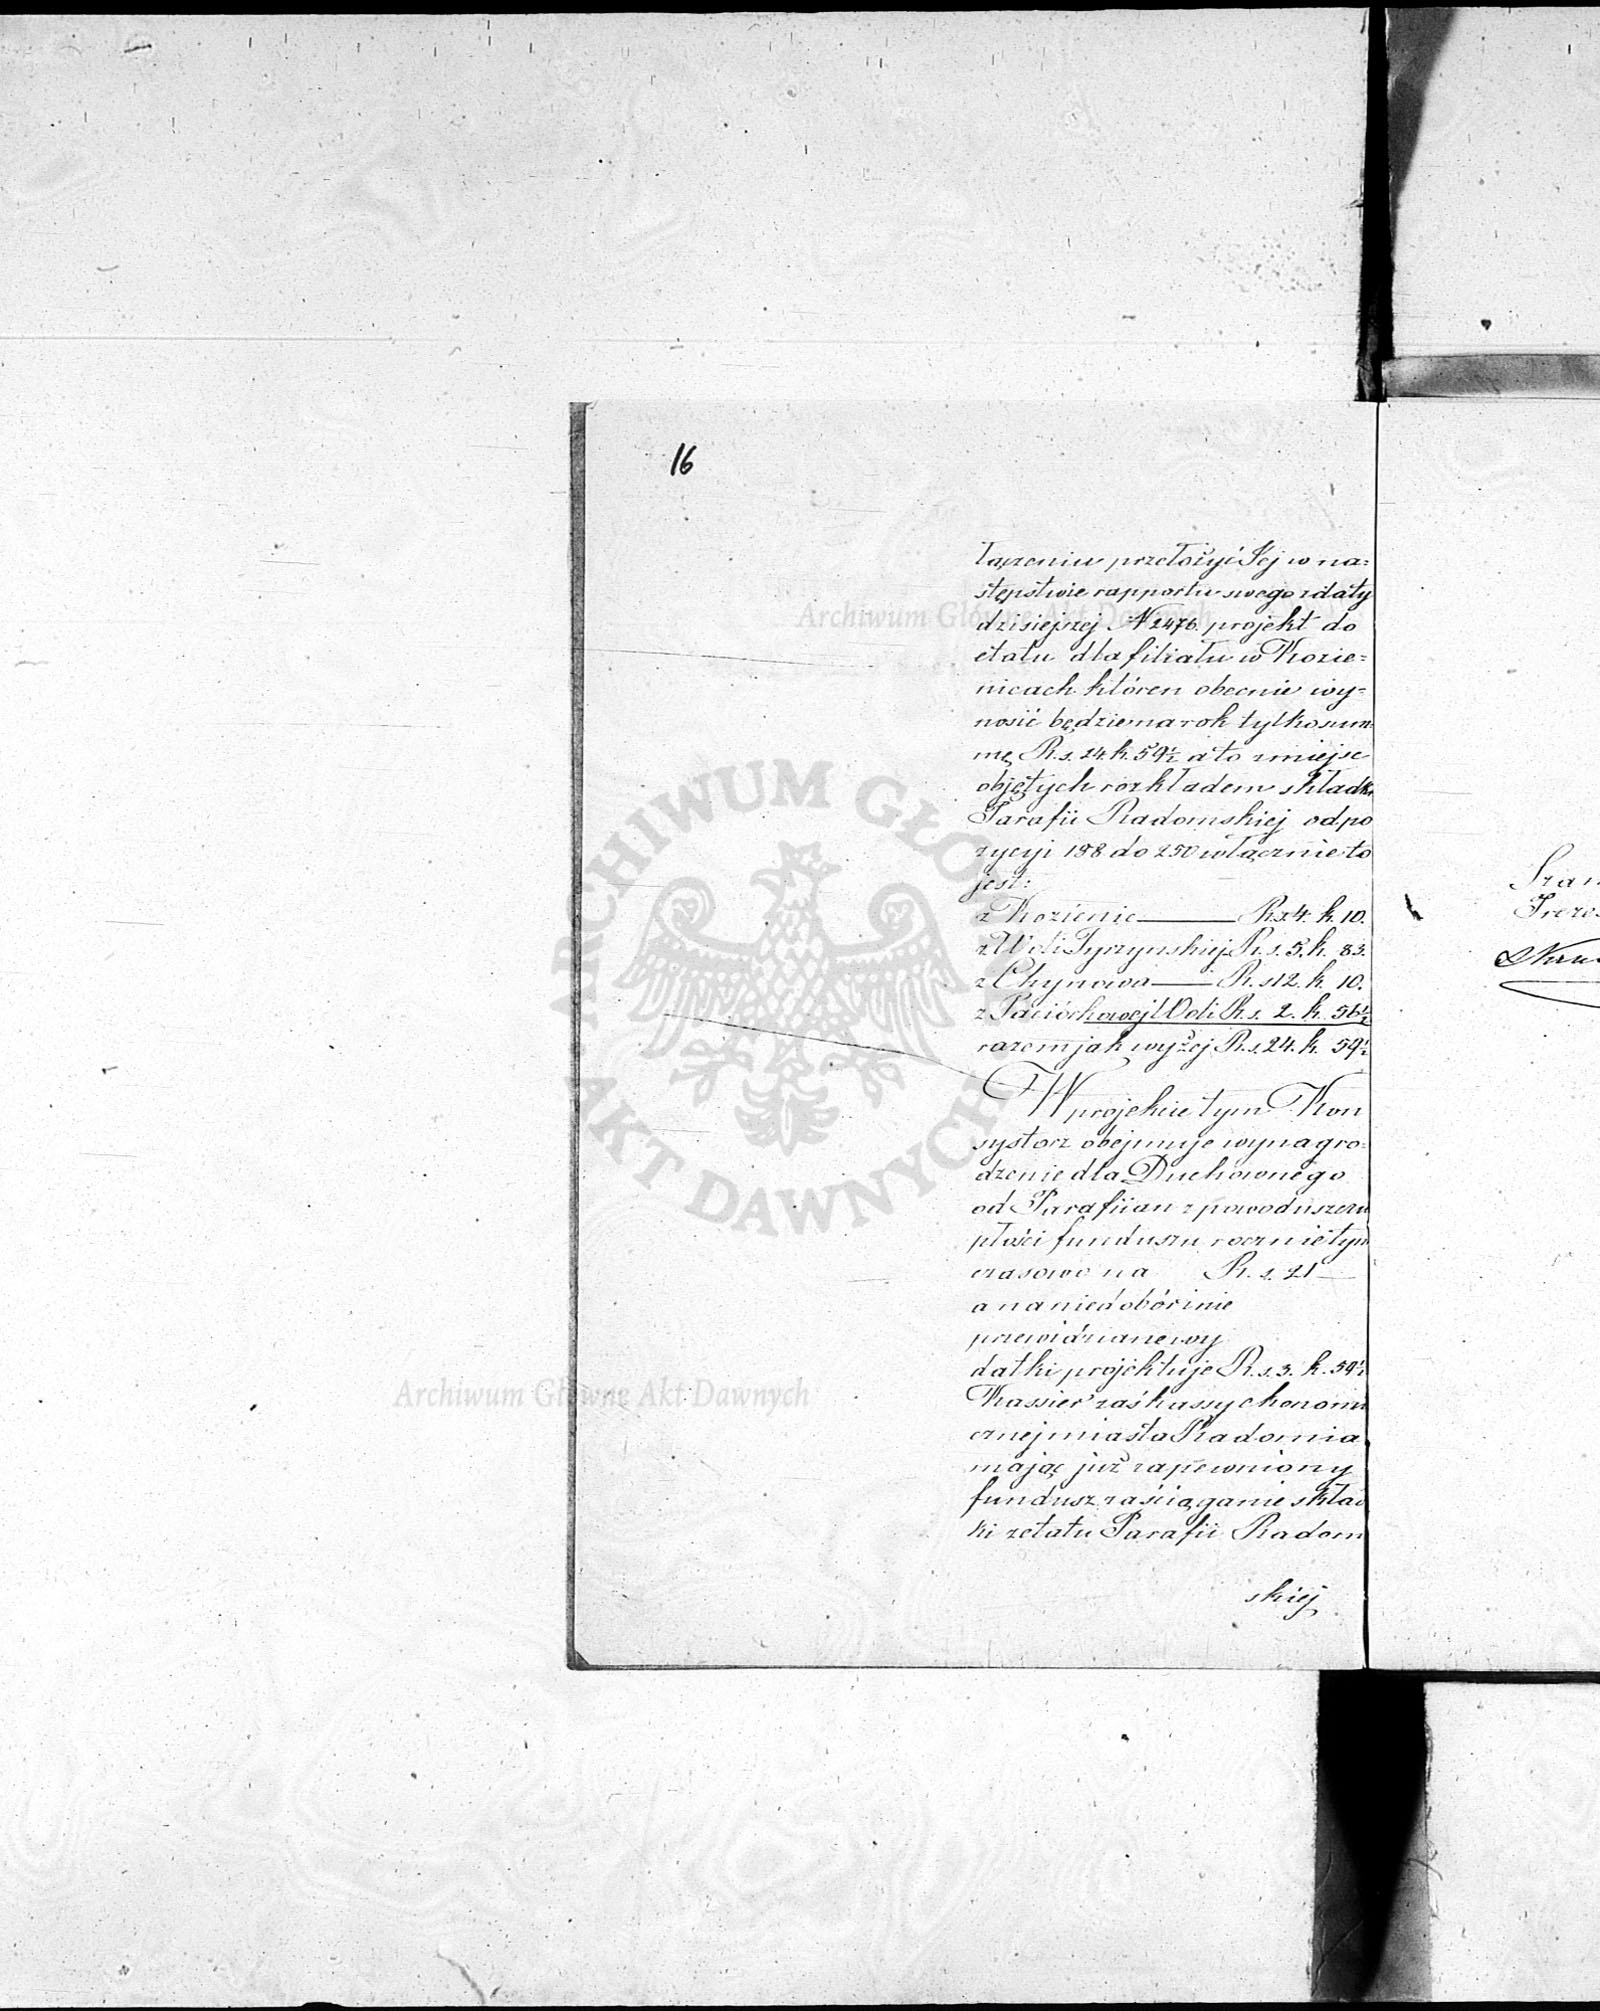 16
łączeniu przełożyć Jej w na=
stępstwie rapportu swego z daty
dzisiejszej N 2476. projekt do
etatu dla filiału w Kozie=
nicach któren obecnie wy=
nosić będzie na rok tylko sum=
mę R. s. 24. k. 59½ a to z miejsc
objętych rozkładem składki
Parafii Radomskiej od po
zycyi 188 do 250 włącznie to
jest:
z Kozienic — R. s. 4. k. 10.
z Woli Tyrzynskiej R. s. 5. k. 83.
z Chynowa — R. s. 12. k. 10.
z Paciórkowej Woli R. s. 2. k. 56½
razem jak wyżej R. s. 24. k. 59½
W projekcie tym Kon
systorz obejmuje wynagro=
dzenie dla Duchownego
od Parafiian z powodu szczu
płości funduszu rocznie tym
czasowo na R. s. 21 —
a na niedobór i nie
przewidziane wy
datki projektuje R. s. 3. k. 59½
Kassier zaś kassy ekonomi
cznej miasta Radomia
mając już zapewniony
fundusz za ściąganie skład
ki z etatu Parafii Radom
skiej
Archiwum Główne Akt Dawnych
ARCHIWUM GŁÓWNE
AKT DAWNYCH
Archiwum Główne Akt Dawnych